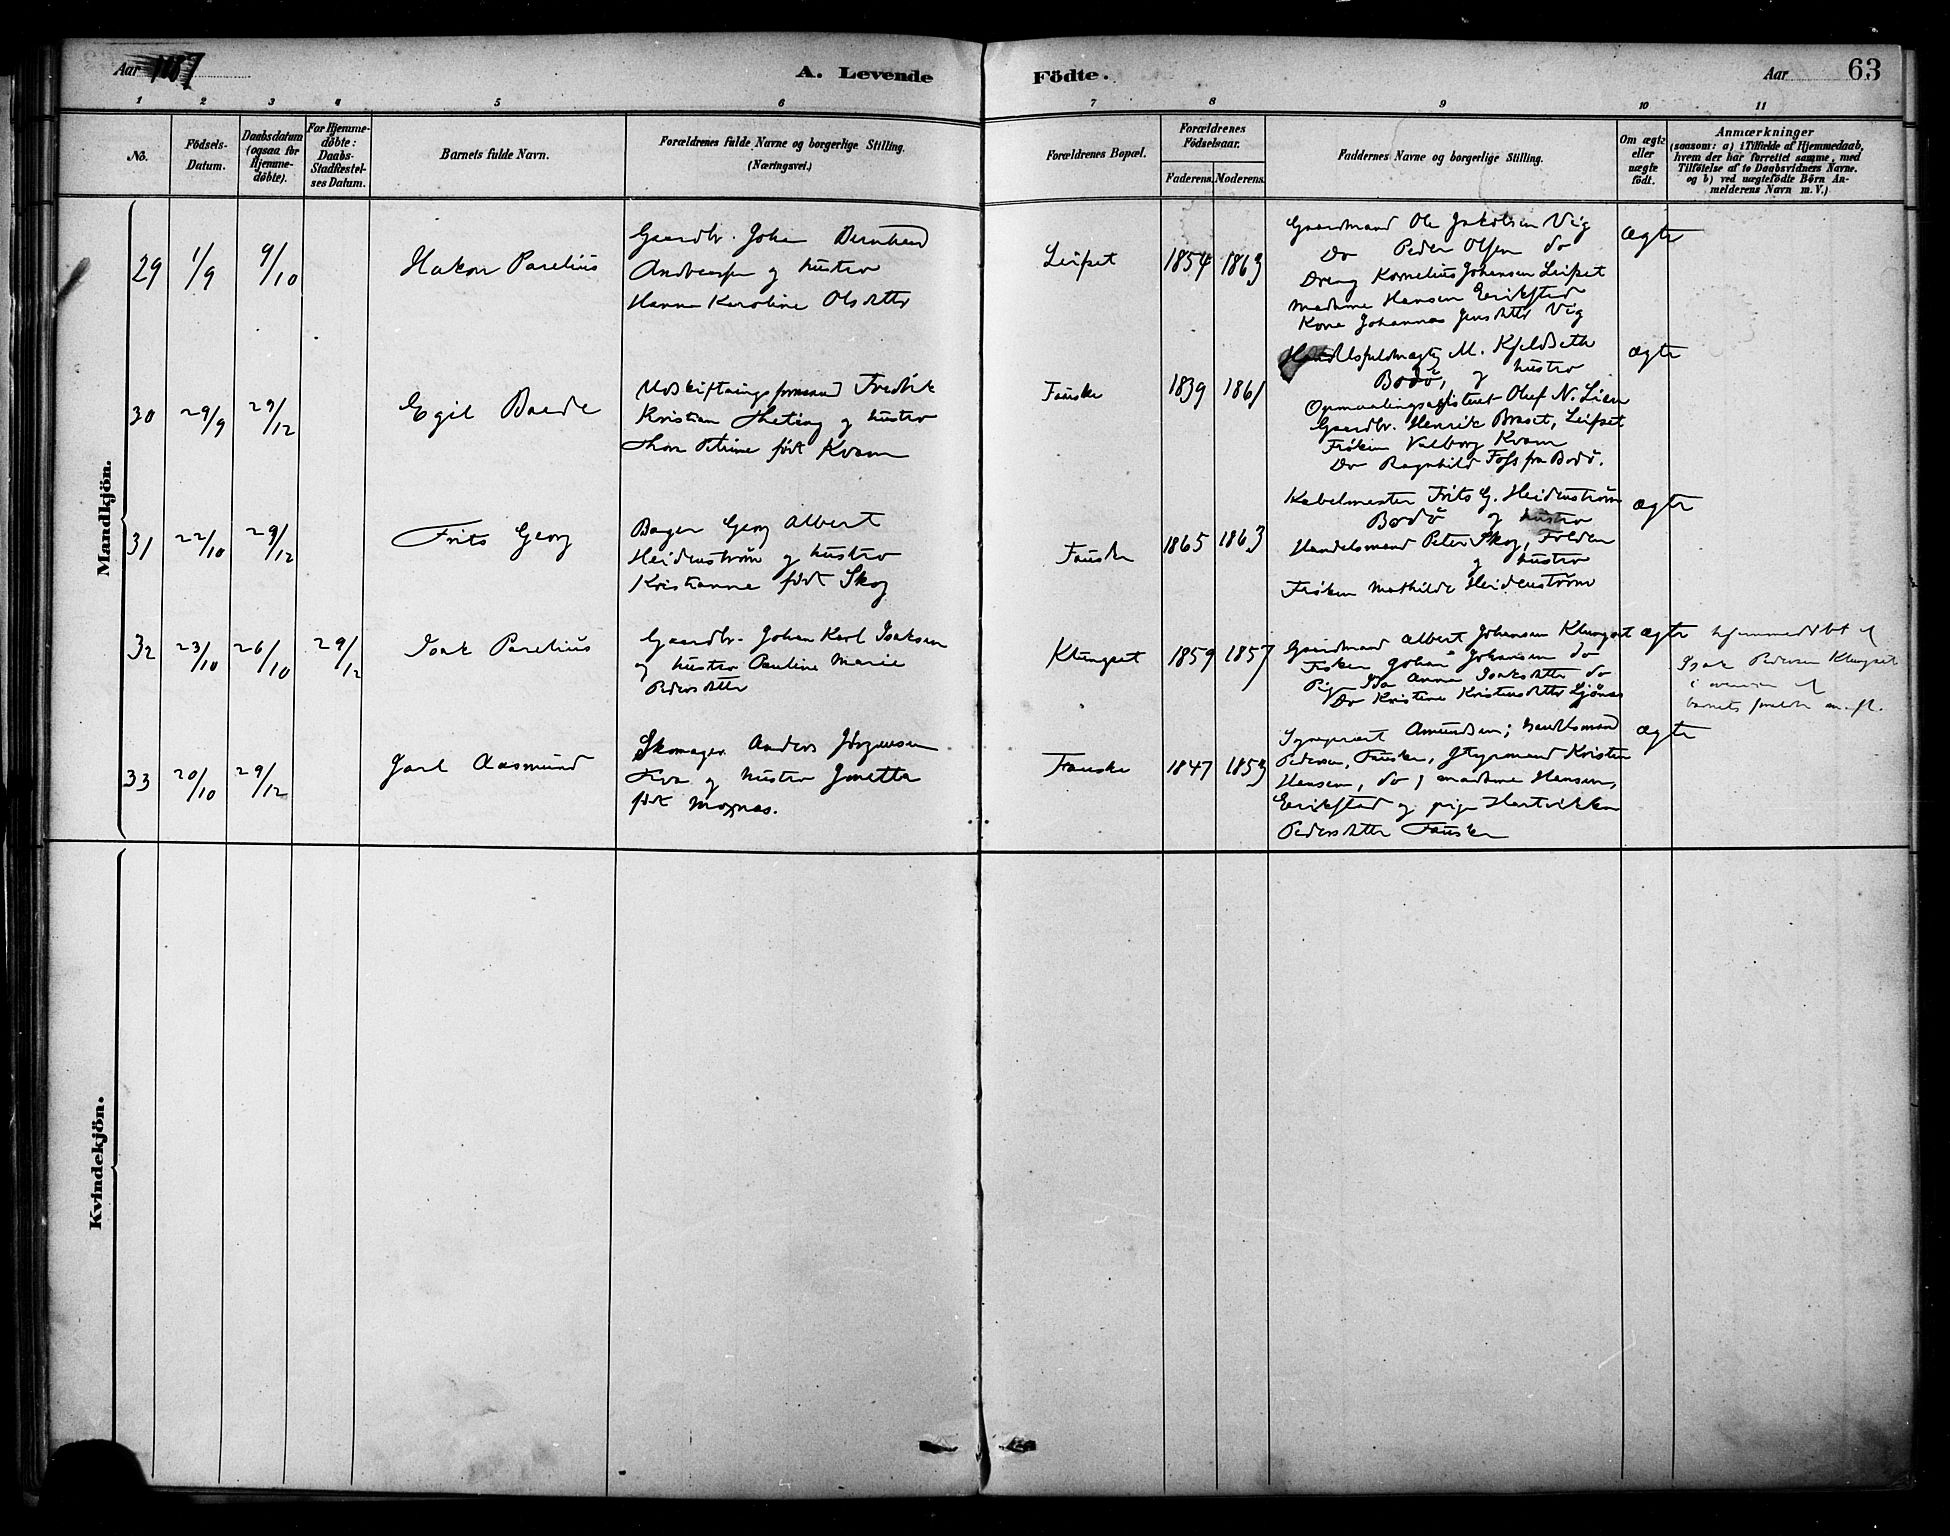 Aar 1887
A. Levende
Födte.
Aar
63
1 2 3 4 5 6 7 8 9 10 11
No.
Födsels-Datum.
Daabsdatum (ogsaa for Hjemme-døbte).
For Hjemme-døbte: Daabs-Stadfæstel-ses Datum.
Barnets fulde Navn.
Forældrenes fulde Navne og borgerlige Stilling.
(Næringsvei.)
Forældrenes Bopæl.
Forældrenes Födselsaar.
Faderens. Moderens.
Faddernes Navne og borgerlige Stilling.
Om ægte eller uægte født.
Anmærkninger
(saasom: a) i Tilfælde af Hjemmedaab,
hvem der har forrettet samme, med
Tilföielse af to Daabsvidners Navne.
og b) ved uægtefödte Börn An-
melderens Navn m. V.)
Mandkjön.
29 1/9 9/10
Hakon Parelius
Gaardbr. Johan Bernhard
Andreassen og hustro
Hanna Karoline Olsdatter
Leifset 1854 1863
Gaardmand Ole Jakobsen Vig
Do Peder Olsen do
Dreng Kornelius Johansen Leifset
Madame Hansen Eerikstad
Kone Johanna Jensdatter Vig
ægte
30 29/9 29/12
Egil Bæde
Udskiftningsformand Fredrik
Kristian og hustro
Thora Petrine født Kvam
Fauske 1839 1861
Handelsfuldmægtig M. Kjeldseth
Bodö, og hustro
Opmaalingsassistent Oluf N. Lien
Gaardbr. Henrik Braset, Leifset
Frøken Valborg Kvam
Do Ragnhild Foss fra Bodö.
ægte
31 22/10 29/12
Frits Georg
Bager Georg Albert
Heidenstrøm og hustro
Kristianne født Skog
Fauske 1865 1863
Kabelmester Frits G. Heidenstrøm
Bodö og hustro
Handelsmand Peter Skog, Folden
og hustro
Frøken Mathilde Heidenstrøm
ægte
32 23/10 26/10 29/12
Isak Parelius
Gaardbr. Johan Karl Isaksen
og hustro Pauline Marie
Pedersdatter
Klungset 1859 1857
Gaardmand Albert Johansen Klungset
Fisker Johan Johansen do
Pige Ida Anna Isaksdatter do
Do Kristine Kristensdatter
ægte
hjemmedöbt af
Isak Pedersen Klungset
i overvær af
barnets forældre
33 20/10 29/12
Jarl Aasmund
Skomager Anders Jørgensen
og hustro Jonetta
født Moxnæs.
Fauske 1847 1853
Amundsen; handelsmand
Pedersen, Fauske, Kristen
Hansen, do, madame Hansen,
Eerikstad og pige Hartvikka
Pedersdatter Fauske
ægte
Kvindekjön.